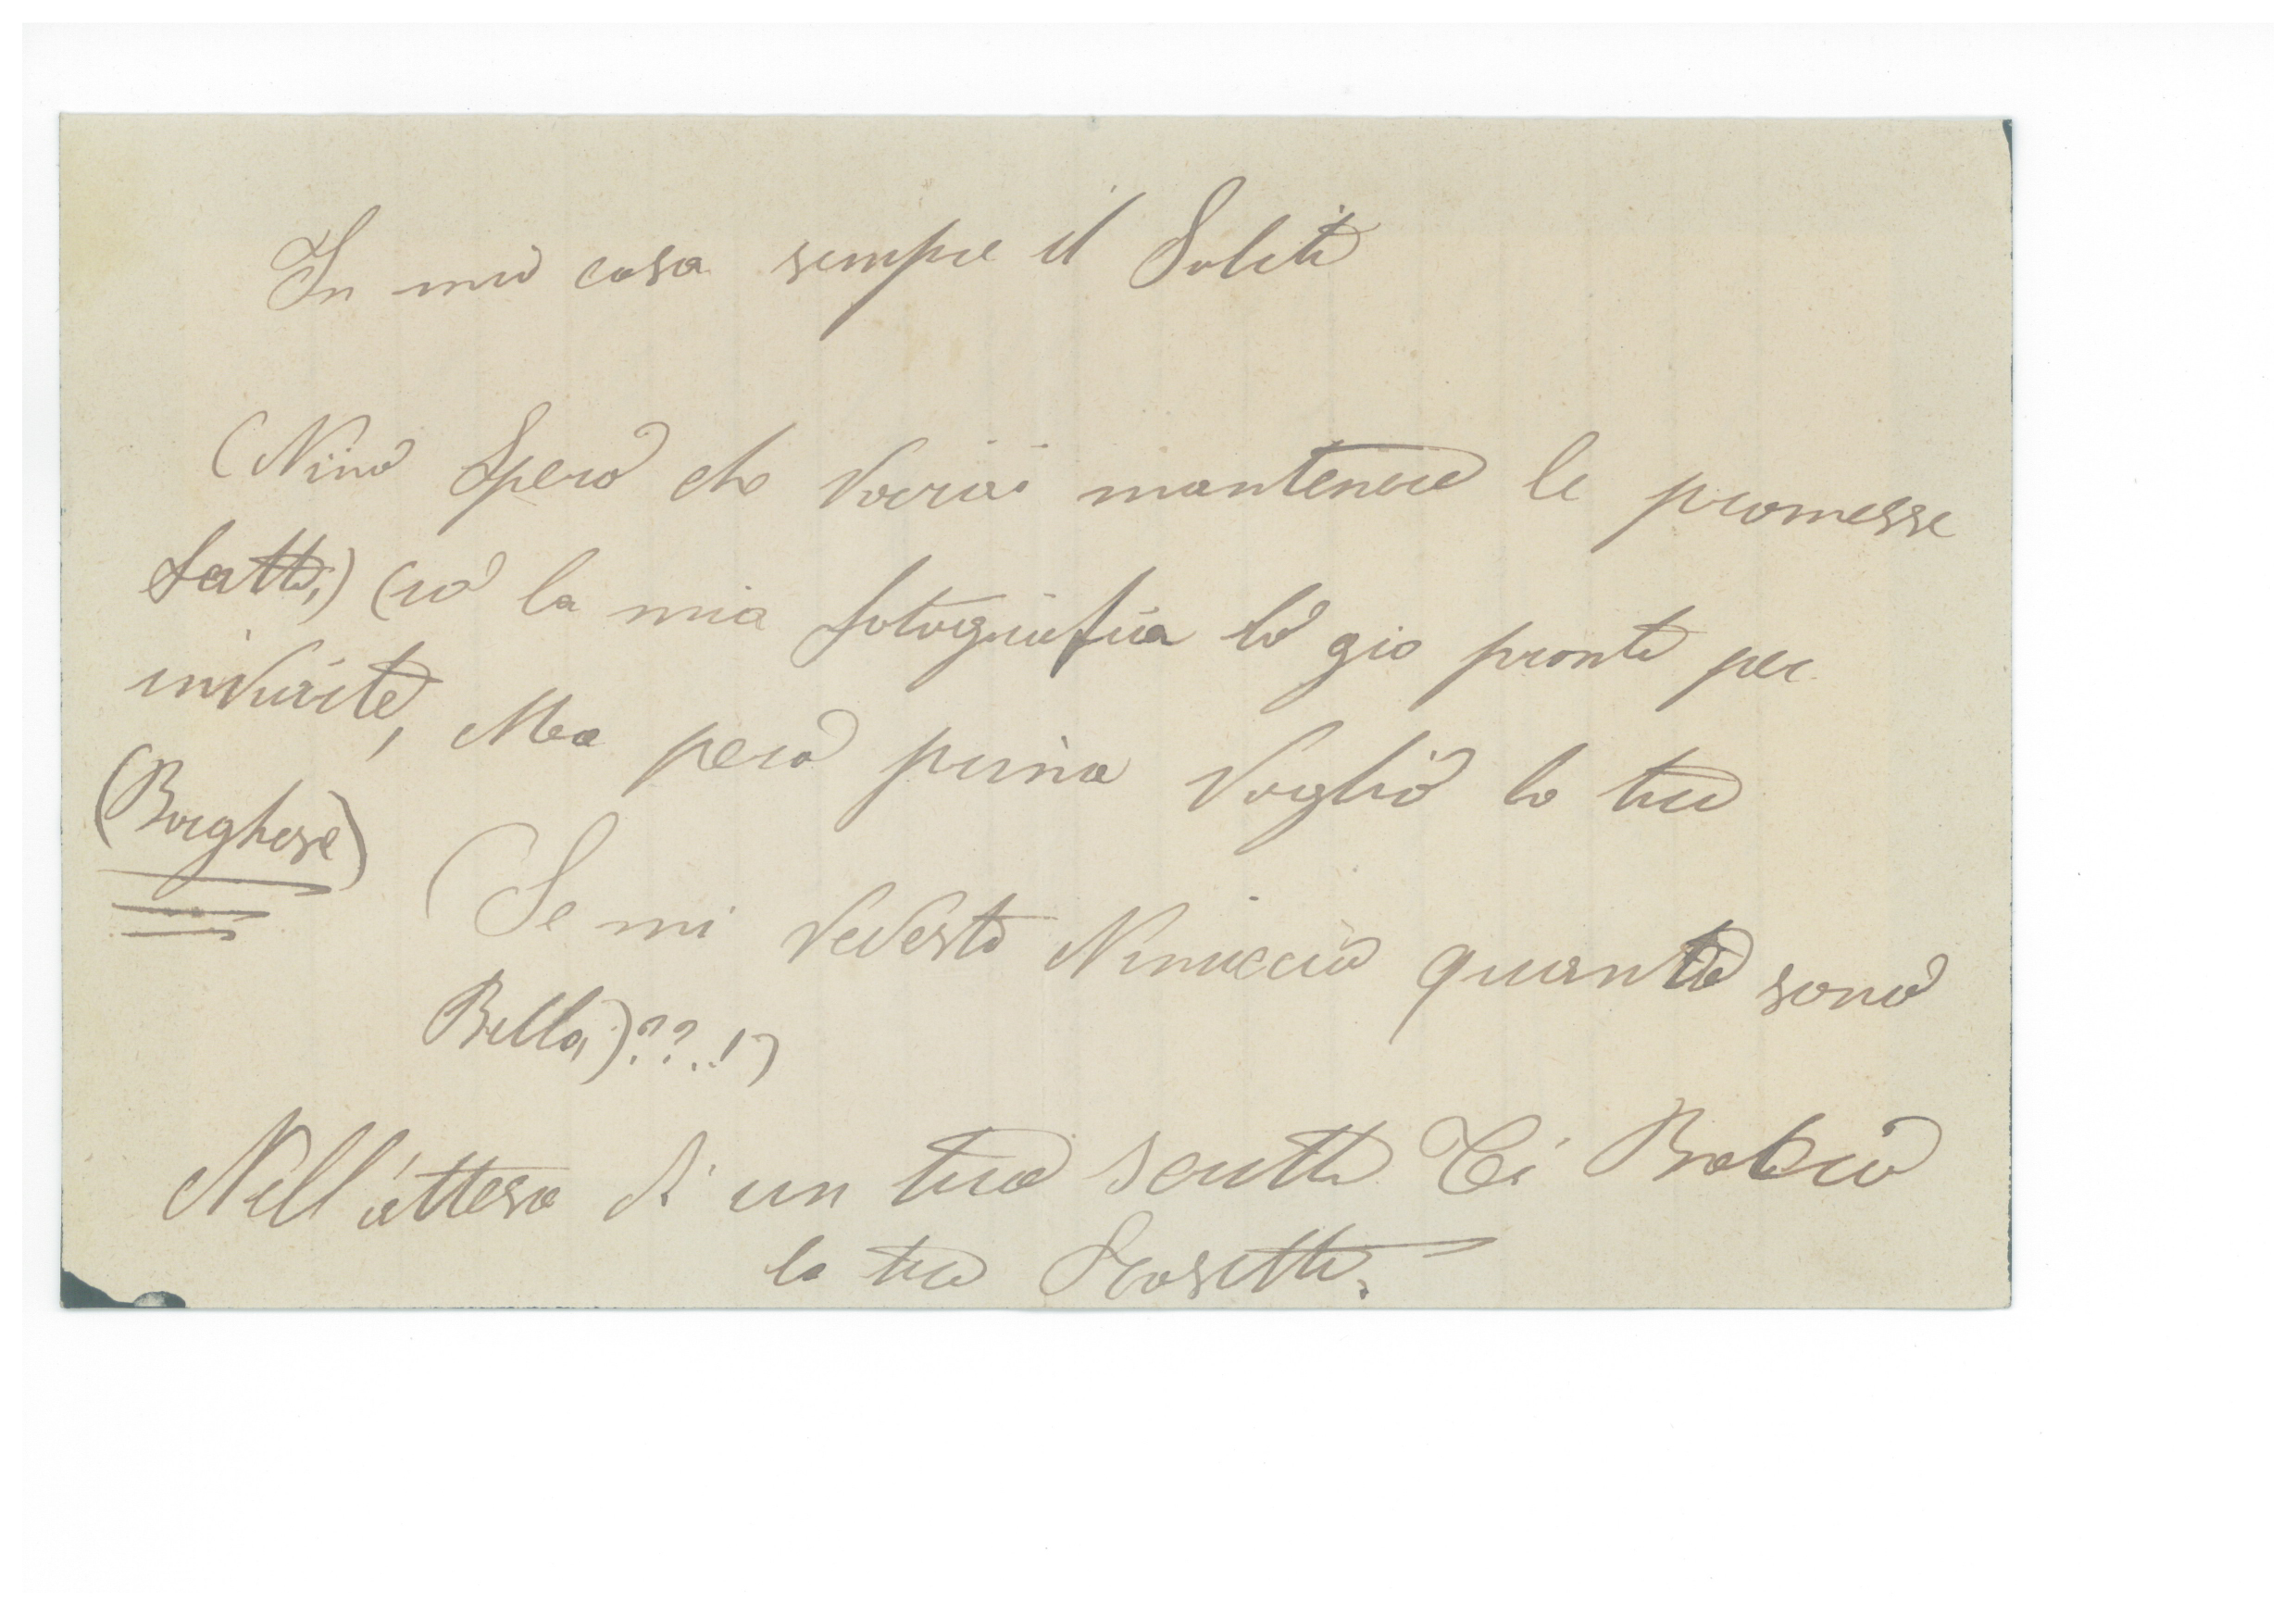 In mia casa sempre il Solito
(Nino Spero che vorrai mantenere le promesse
fatte,) (io la mia fotografia lo gia pronta per
inviarte, Ma pero prima Voglio la tua
(Borghese)
(Se mi vedesti Ninuccio quanto sono
Bella)??.!)
Nell'attesa di un tuo scritto Ti Bacio
la tua Rosetta.